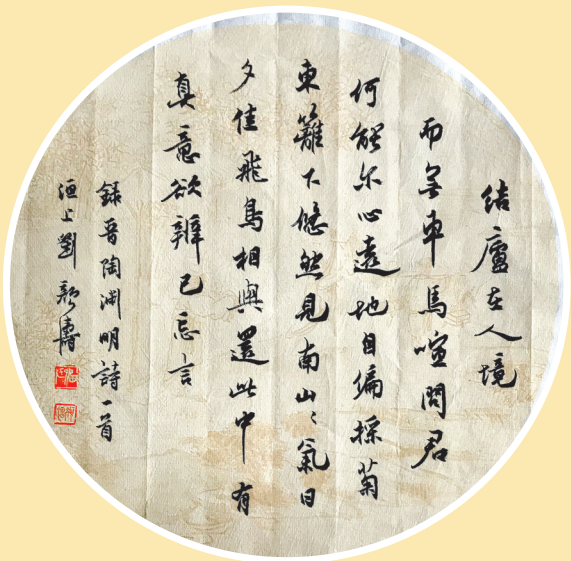 结廬在人境
而無車馬喧問君
何能尔心遠地自偏採菊
東籬下悠然見南山〻氣日
夕佳飛鳥相與還此中有
真意欲辨已忘言
錄晋陶渊明詩一首
洹上劉新濤